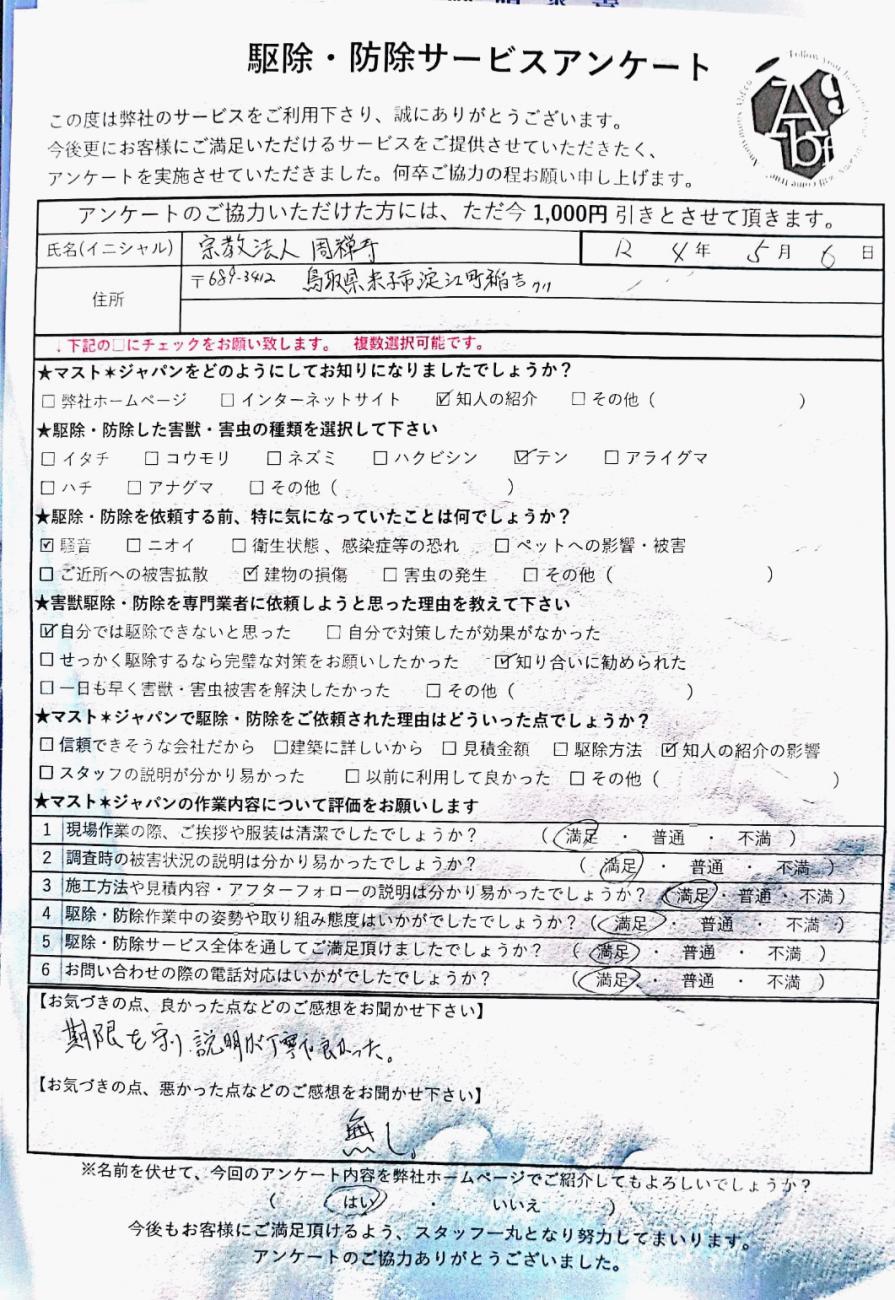 駆除・防除サービスアンケート
この度は弊社のサービスをご利用下さり、誠にありがとうございます。
今後更にお客様にご満足いただけるサービスをご提供させていただきたく、
アンケートを実施させていただきました。何卒ご協力の程お願い申し上げます。
アンケートのご協力いただけた方には、ただ今 1,000円 引きとさせて頂きます。
氏名(イニシャル) 宗教法人 周禅寺 R 4 年 5 月 6 日
住所 〒689-3412 鳥取県米子市淀江町稲吉
↓下記の□にチェックをお願い致します。 複数選択可能です。
★マスト✶ジャパンをどのようにしてお知りになりましたでしょうか？
□ 弊社ホームページ □ インターネットサイト ☑ 知人の紹介 □ その他（ ）
★駆除・防除した害獣・害虫の種類を選択して下さい
□ イタチ □ コウモリ □ ネズミ □ ハクビシン ☑ テン □ アライグマ
□ ハチ □ アナグマ □ その他（ ）
★駆除・防除を依頼する前、特に気になっていたことは何でしょうか？
☑ 騒音 □ ニオイ □ 衛生状態、感染症等の恐れ □ ペットへの影響・被害
□ ご近所への被害拡散 ☑ 建物の損傷 □ 害虫の発生 □ その他（ ）
★害獣駆除・防除を専門業者に依頼しようと思った理由を教えて下さい
☑ 自分では駆除できないと思った □ 自分で対策したが効果がなかった
□ せっかく駆除するなら完璧な対策をお願いしたかった ☑ 知り合いに勧められた
□ 一日も早く害獣・害虫被害を解決したかった □ その他（ ）
★マスト✶ジャパンで駆除・防除をご依頼された理由はどういった点でしょうか？
□ 信頼できそうな会社だから □建築に詳しいから □ 見積金額 □ 駆除方法 ☑ 知人の紹介の影響
□ スタッフの説明が分かり易かった □ 以前に利用して良かった □ その他（ ）
★マスト✶ジャパンの作業内容について評価をお願いします
1 現場作業の際、ご挨拶や服装は清潔でしたでしょうか？ （ 満足 ・ 普通 ・ 不満 ）
2 調査時の被害状況の説明は分かり易かったでしょうか？ （ 満足 ・ 普通 ・ 不満 ）
3 施工方法や見積内容・アフターフォローの説明は分かり易かったでしょうか？（満足・普通・不満）
4 駆除・防除作業中の姿勢や取り組み態度はいかがでしたでしょうか？（ 満足 ・ 普通 ・ 不満 ）
5 駆除・防除サービス全体を通してご満足頂けましたでしょうか？ （ 満足 ・ 普通 ・ 不満 ）
6 お問い合わせの際の電話対応はいかがでしたでしょうか？ （ 満足 ・ 普通 ・ 不満 ）
【お気づきの点、良かった点などのご感想をお聞かせ下さい】
期限を守り、説明が丁寧で良かった。
【お気づきの点、悪かった点などのご感想をお聞かせ下さい】
無し。
※名前を伏せて、今回のアンケート内容を弊社ホームページでご紹介してもよろしいでしょうか？
（ はい ・ いいえ ）
今後もお客様にご満足頂けるよう、スタッフ一丸となり努力してまいります。
アンケートのご協力ありがとうございました。